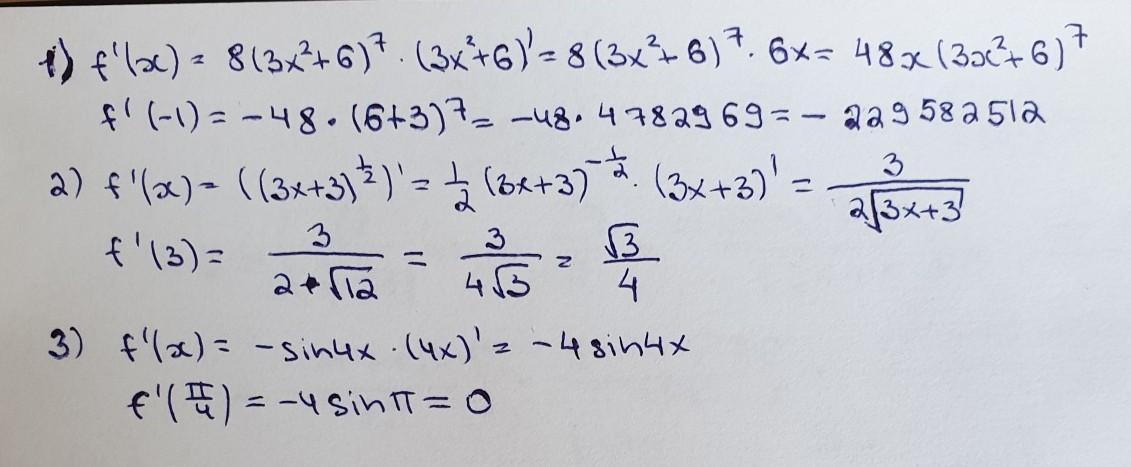 1) f'(x) = 8(3x²+6)⁷ · (3x²+6)' = 8(3x²+6)⁷ · 6x = 48x(3x²+6)⁷
f'(-1) = -48 · (6+3)⁷ = -48 · 4782969 = - 229582512
2) f'(x) = ((3x+3)^{1/2})' = 1/2 (3x+3)^{-1/2} · (3x+3)' = 3/(2√(3x+3))
f'(3) = 3/(2·√12) = 3/(4√3) = √3/4
3) f'(x) = -sin4x · (4x)' = -4sin4x
f'(π/4) = -4sinπ = 0